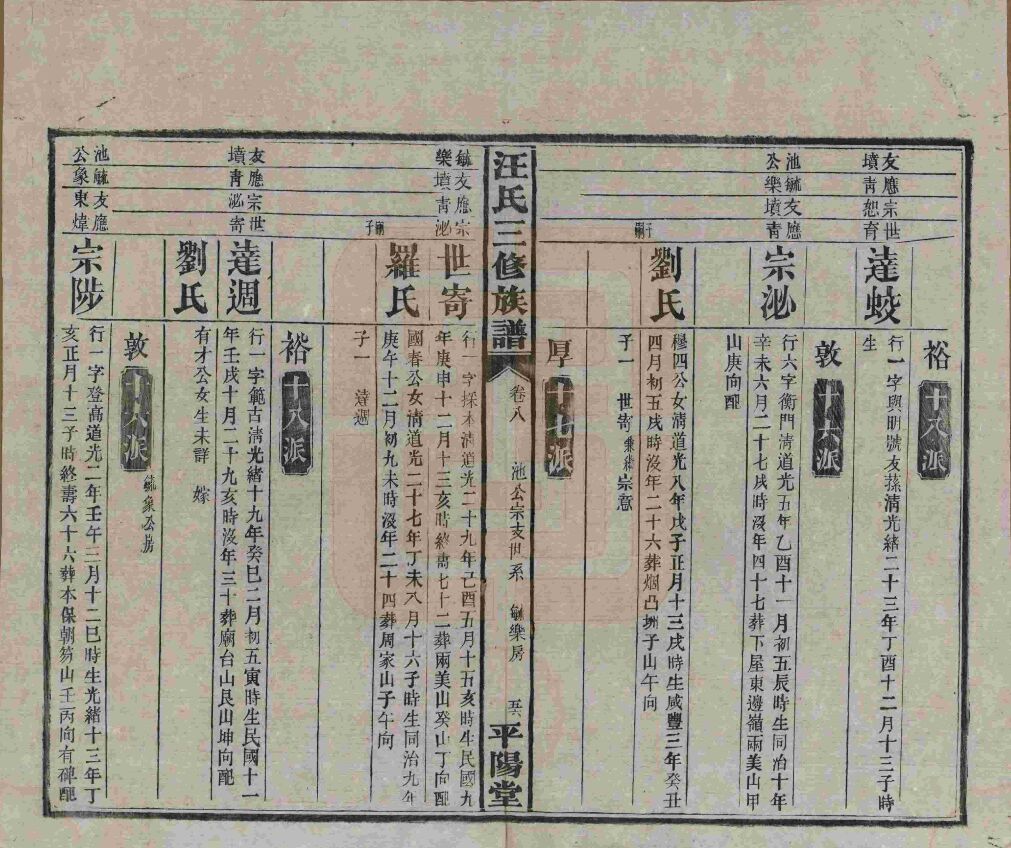 裕 十八派
友應宗世
墳靑恕育
達蛟
行一字興明號友蓀淸光緒二十三年丁酉十二月十三子時
生
敦 十六派
池毓友應
公樂墳靑
宗泌
行六字衡門淸道光五年乙酉十一月初五辰時生同治十年
辛未六月二十七戌時沒年四十七葬下屋東邊嶺兩美山甲
山庚向配
劉氏
穆四公女淸道光八年戊子正月十三戌時生咸豐三年癸丑
四月初五戌時沒年二十六葬烟凸坳子山午向
子一 世寄兼繼宗意
厚 十七派
汪氏三修族譜
卷八 池公宗支世系 毓樂房
平陽堂
毓友應宗
樂墳靑泌
世寄
行一字採本淸道光二十九年己酉五月十五亥時生民國九
年庚申十二月十三亥時終壽七十二葬兩美山癸山丁向配
羅氏
國春公女淸道光二十七年丁未八月十六子時生同治九年
庚午十二月初九未時沒年二十四葬周家山子午向
子一 達週
裕 十八派
友應宗世
墳靑泌寄
達週
行一字範古淸光緒十九年癸巳二月初五寅時生民國十一
年壬戌十月二十九亥時沒年三十葬廟台山艮山坤向配
劉氏
有才公女生未詳 嫁
敦 十八派 毓象公房
池毓友應
公象東煒
宗陟
行一字登高道光二年壬午三月十二巳時生光緒十三年丁
亥正月十三子時終壽六十六葬本保朝笏山壬丙向有碑配